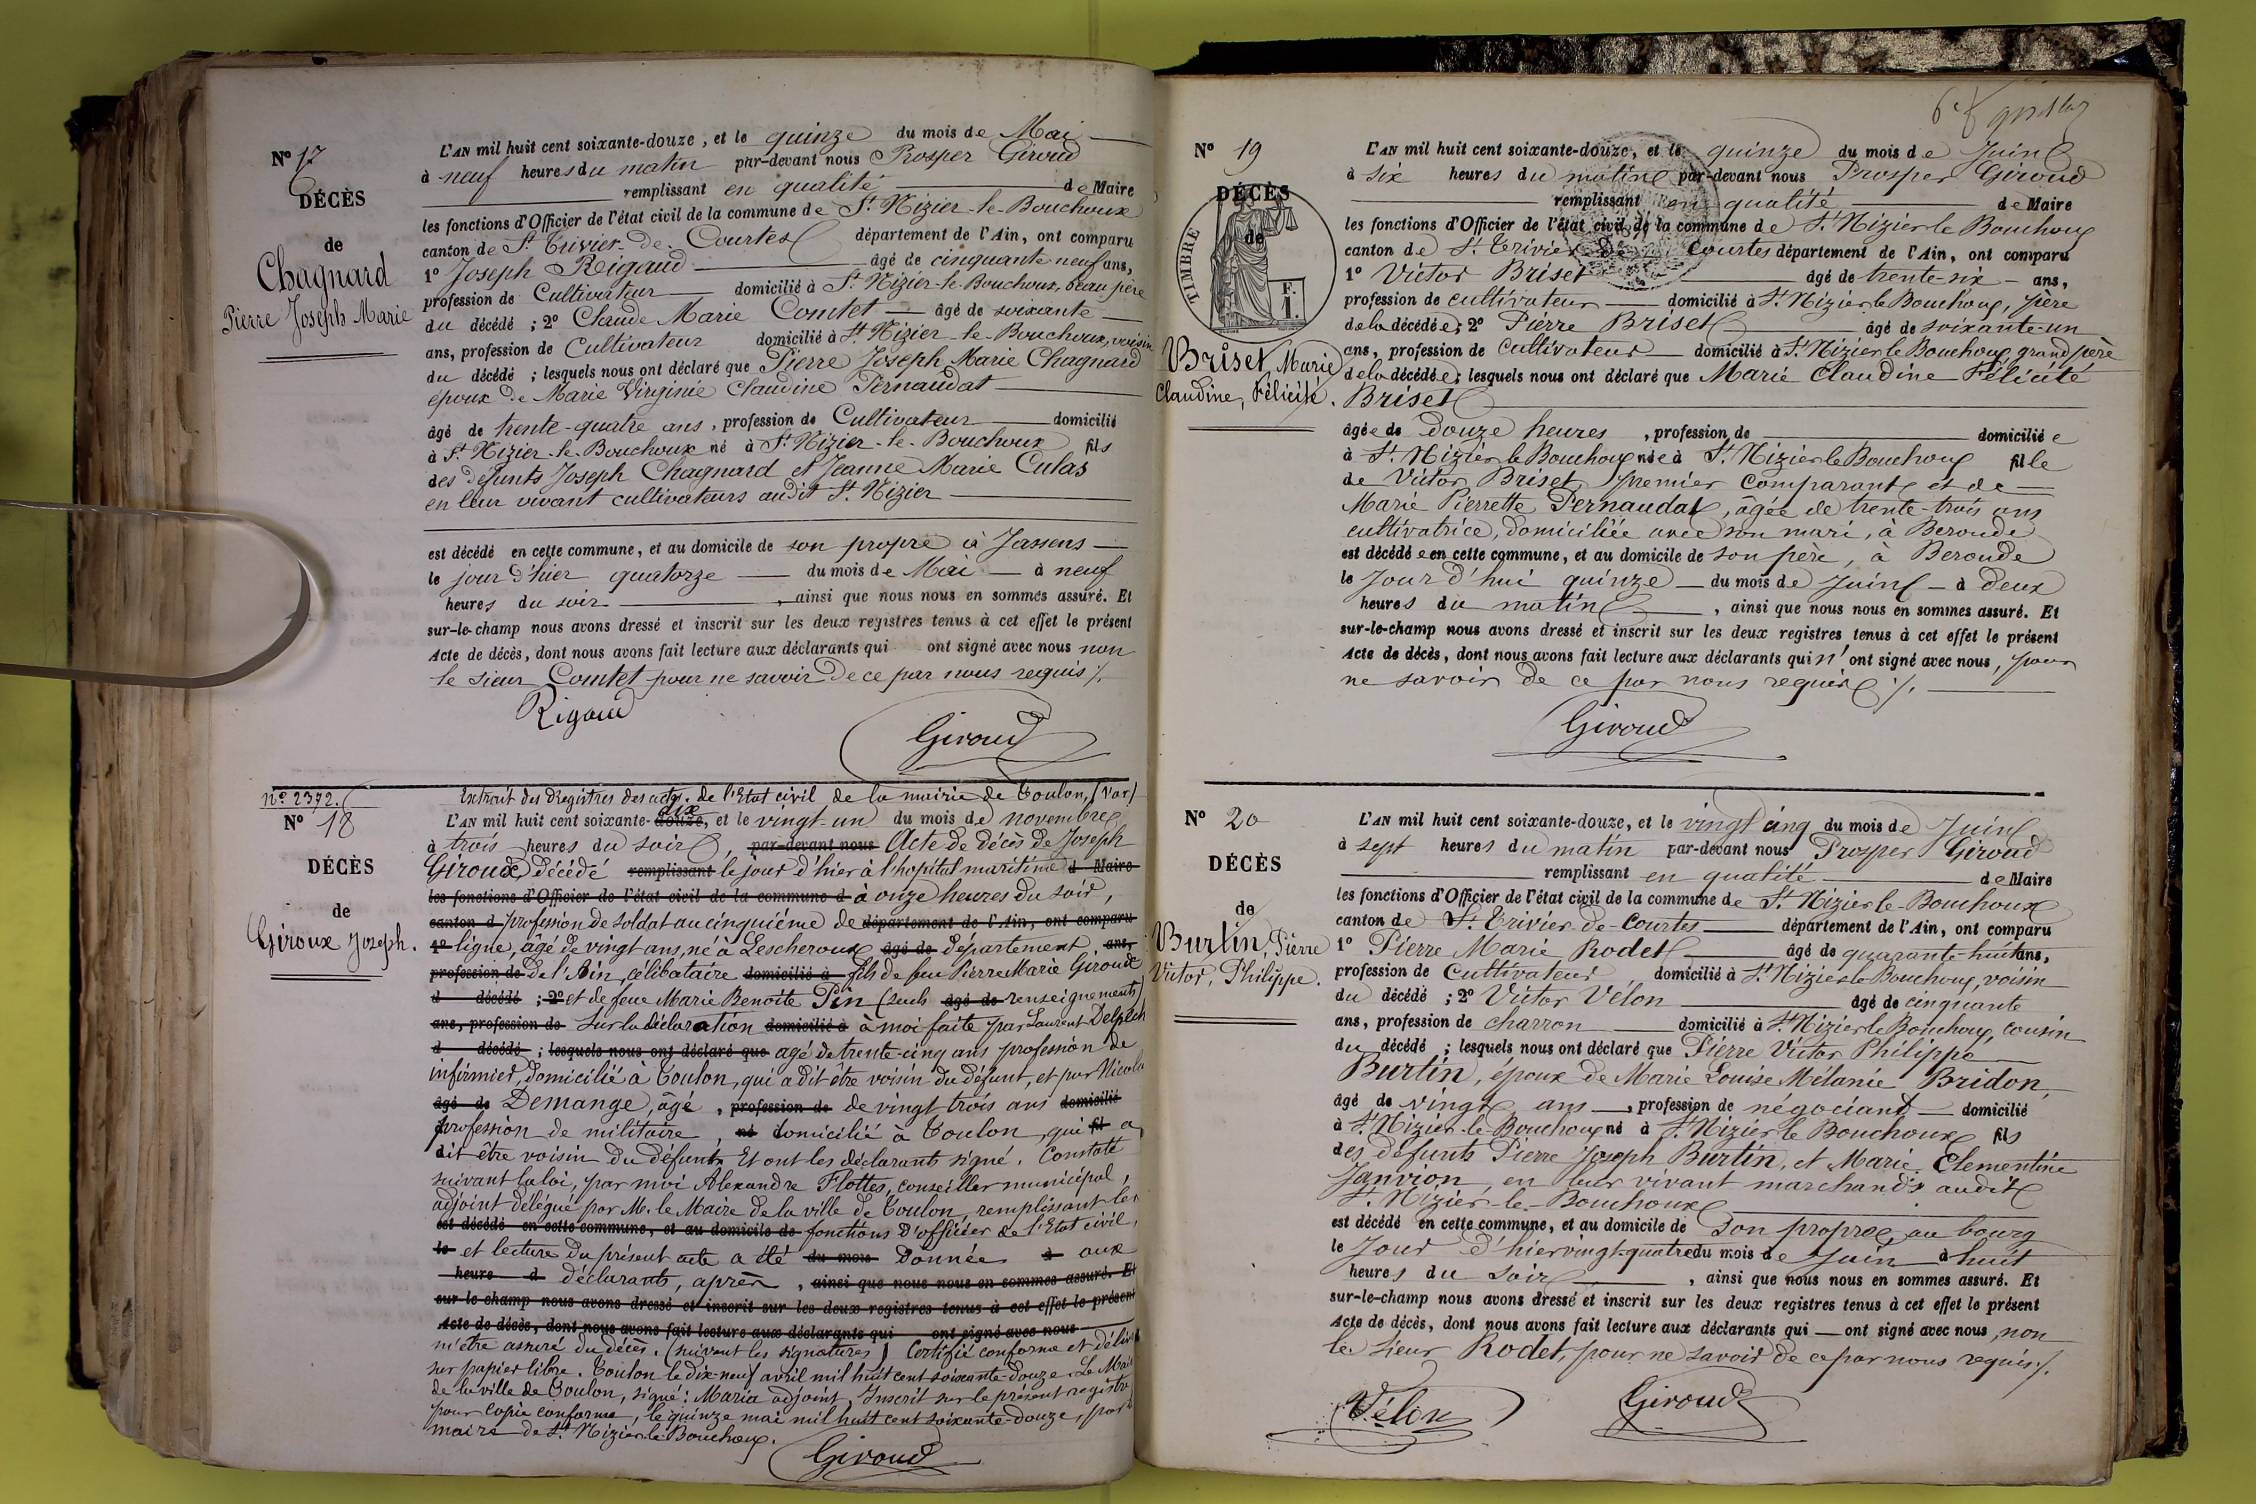 N° 17
DÉCÈS
de
Chagnard
Pierre Joseph Marie
L'AN mil huit cent soixante-douze, et le quinze du mois de Mai
à neuf heures du matin par-devant nous Prosper Giroud
remplissant en qualité de Maire
les fonctions d'Officier de l'état civil de la commune de St Nizier-le-Bouchoux
canton de St Trivier-de-Courtes département de l'Ain, ont comparu
1° Joseph Rigaud âgé de cinquante neuf ans,
profession de Cultivateur domicilié à St Nizier-le-Bouchoux, beau-père
du décédé ; 2° Claude Marie Comtet âgé de soixante
ans, profession de Cultivateur domicilié à St Nizier-le-Bouchoux, voisin
du décédé ; lesquels nous ont déclaré que Pierre Joseph Marie Chagnard
époux de Marie Virginie Claudine Pernaudat
âgé de trente-quatre ans, profession de Cultivateur domicilié
à St Nizier-le-Bouchoux né à St Nizier-le-Bouchoux fils
des défunts Joseph Chagnard et Jeanne Marie Culas
en leur vivant cultivateurs audit St Nizier
est décédé en cette commune, et au domicile de son propre à Jassens
le jour d'hier quatorze du mois de Mai à neuf
heures du soir, ainsi que nous nous en sommes assuré. Et
sur-le-champ nous avons dressé et inscrit sur les deux registres tenus à cet effet le présent
Acte de décès, dont nous avons fait lecture aux déclarants qui ont signé avec nous non
le sieur Comtet pour ne savoir de ce par nous requis /.
Rigaud
Giroud
n° 2372.
N° 18
DÉCÈS
de
Giroux Joseph.
Extrait des Registres des actes de l'Etat civil de la mairie de Toulon, (Var)
L'AN mil huit cent soixante-douze dix, et le vingt-un du mois de novembre
à trois heures du soir, par-devant nous Acte de décès de Joseph
Giroux décédé remplissant le jour d'hier à l'hopital maritime d Maire
les fonctions d'Officier de l'état civil de la commune d à onze heures du soir,
canton d profession de soldat au cinquième de département de l'Ain, ont comparu
1° ligne, âgé de vingt ans, né à Lescheroux âgé de département ans,
profession de de l'Ain, célibataire domicilié à fils de feu Pierre Marie Giroux
d décédé ; 2° et de feue Marie Benoite Pin (seuls âgé de renseignements)
ans, profession de Sur la déclaration domicilié à à moi faite par Laurent Delpech
d décédé ; lesquels nous ont déclaré que agé de trente-cinq ans profession de
infirmier, domicilié à Toulon, qui a dit être voisin du défunt, et par Nicolas
âgé de Demange, âgé, profession de de vingt trois ans domicilié
profession de militaire, né domicilié à Toulon, qui fil a
dit être voisin du défunt. Et ont les déclarants signé. Constaté
suivant la loi, par moi Alexandre Flottes, conseiller municipal,
adjoint délégué par M. le Maire de la ville de Toulon, remplissant les
est décédé en cette commune, et au domicile de fonctions d'officier de l'Etat civil,
le et lecture du présent acte a été du mois donnée à aux
heure d déclarants, après, ainsi que nous nous en sommes assuré. Et
sur-le-champ nous avons dressé et inscrit sur les deux registres tenus à cet effet le présent
Acte de décès, dont nous avons fait lecture aux déclarants qui ont signé avec nous
m'être assuré du décès. (suivent les signatures) Certifié conforme et délivré
sur papier libre. Toulon le dix-neuf avril mil huit cent soixante-douze. Le Maire
de la ville de Toulon, signé : Maria adjoint. Inscrit sur le présent registre
pour copie conforme, le quinze mai mil huit cent soixante-douze, par
maire de St Nizier-le-Bouchoux.
Giroud
N° 19
DÉCÈS
de
TIMBRE
F.
1.
Briset, Marie
Claudine, Félicité.
L'AN mil huit cent soixante-douze, et le quinze du mois de Juin
à six heures du matin par-devant nous Prosper Giroud
remplissant en qualité de Maire
les fonctions d'Officier de l'état civil de la commune de St Nizier le Bouchoux
canton de St Trivier de Courtes département de l'Ain, ont comparu
1° Victor Briset âgé de trente-six ans,
profession de cultivateur domicilié à St Nizier le Bouchoux, père
de la décédée ; 2° Pierre Briset âgé de soixante-un
ans, profession de cultivateur domicilié à St Nizier le Bouchoux, grand père
de la décédée ; lesquels nous ont déclaré que Marie Claudine Félicité
Briset
âgée de douze heures, profession de domiciliée
à St Nizier le Bouchoux née à St Nizier le Bouchoux fille
de Victor Briset, premier comparant et de
Marie Pierrette Pernaudat, âgée de trente-trois ans
cultivatrice, domiciliée avec son mari, à Beroude
est décédée en cette commune, et au domicile de son père, à Beroude
le Jour d'hui quinze du mois de Juin à deux
heures du matin, ainsi que nous nous en sommes assuré. Et
sur-le-champ nous avons dressé et inscrit sur les deux registres tenus à cet effet le présent
Acte de décès, dont nous avons fait lecture aux déclarants qui n'ont signé avec nous, pour
ne savoir de ce par nous requis /.
Giroud
N° 20
DÉCÈS
de
Burtin, Pierre
Victor, Philippe.
L'AN mil huit cent soixante-douze, et le vingt cinq du mois de Juin
à sept heures du matin par-devant nous Prosper Giroud
remplissant en qualité de Maire
les fonctions d'Officier de l'état civil de la commune de St Nizier-le-Bouchoux
canton de St Trivier-de-Courtes département de l'Ain, ont comparu
1° Pierre Marie Rodet âgé de quarante huit ans,
profession de Cultivateur domicilié à St Nizier le Bouchoux, voisin
du décédé ; 2° Victor Vélon âgé de cinquante
ans, profession de charron domicilié à St Nizier le Bouchoux, cousin
du décédé ; lesquels nous ont déclaré que Pierre Victor Philippe
Burtin, époux de Marie Louise Mélanie Bridon,
âgé de vingt ans, profession de négociant domicilié
à St Nizier-le-Bouchoux né à St Nizier le Bouchoux fils
des défunts Pierre Joseph Burtin, et Marie Clementine
Janvion, en leur vivant marchands audit
St Nizier-le-Bouchoux
est décédé en cette commune, et au domicile de son propre, au bourg
le Jour d'hier vingt-quatre du mois de Juin à huit
heures du soir, ainsi que nous nous en sommes assuré. Et
sur-le-champ nous avons dressé et inscrit sur les deux registres tenus à cet effet le présent
Acte de décès, dont nous avons fait lecture aux déclarants qui ont signé avec nous, non
le sieur Rodet, pour ne savoir de ce par nous requis /.
Vélon
Giroud